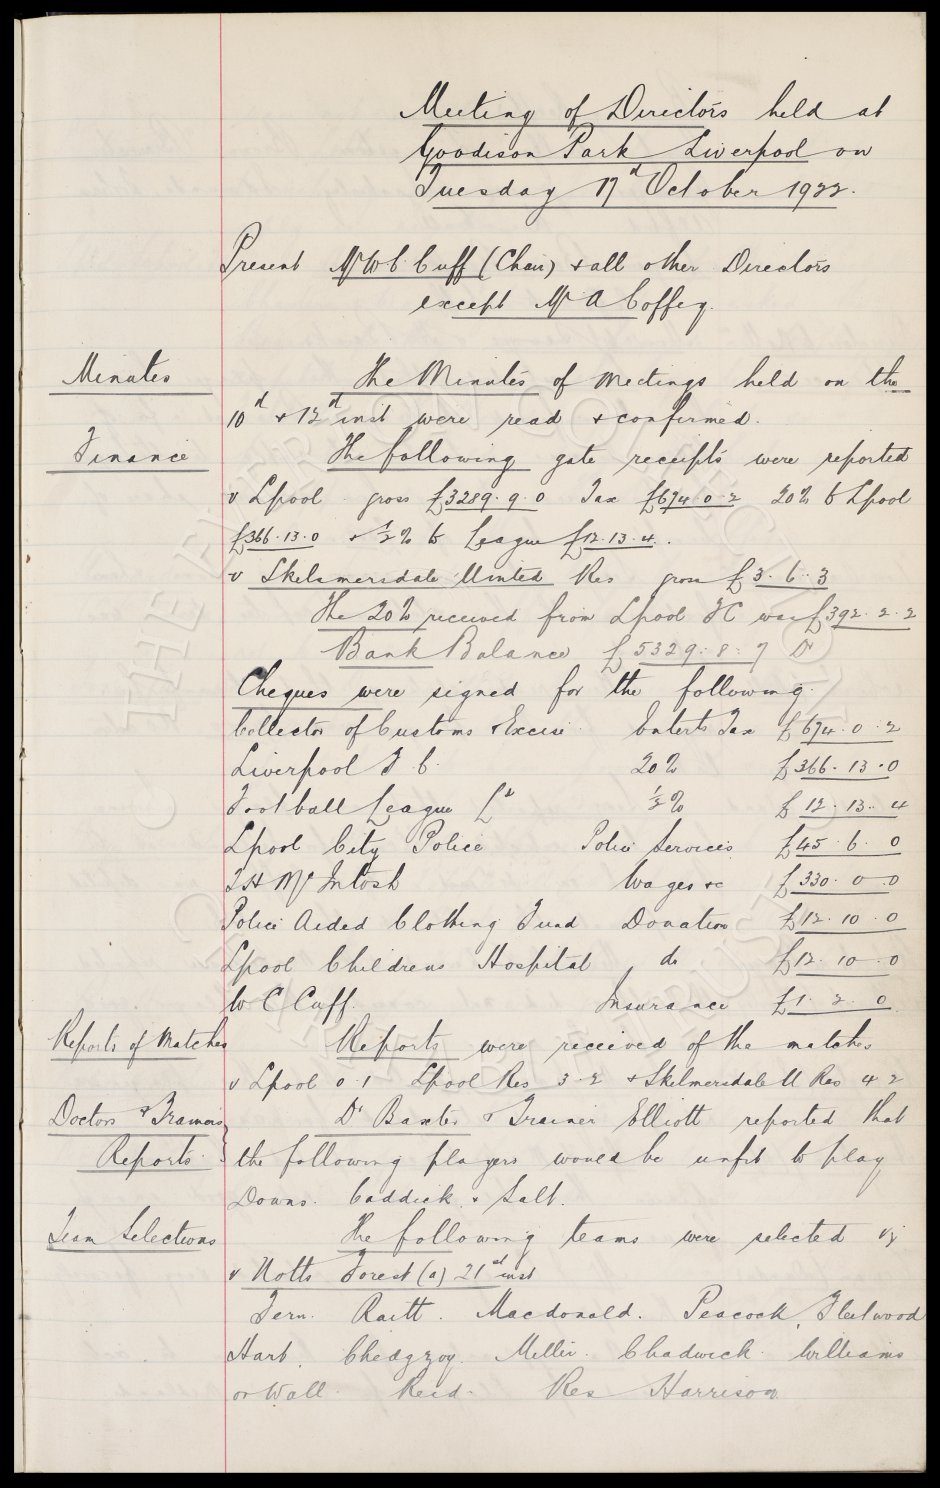 Meeting of Directors held at
Goodison Park Liverpool on
Tuesday 17d October 1922.
Present Mr W C Cuff (Chair) & all other Directors
except Mr A Coffey.
Minutes The Minutes of meetings held on the
10d & 12d inst were read & confirmed.
Finance The following gate receipts were reported
v Lpool gross £3289.9.0 Tax £674.0.2 20% to Lpool
£366.13.0 & ½% to League £12.13.4.
v Skelmersdale United Res gross £3.6.3
The 20% received from Lpool FC was £392.2.2
Bank Balance £5329.8.7 Dr
Cheques were signed for the following.
Collector of Customs & Excise Enterts Tax £674.0.2
Liverpool F C. 20% £366.13.0
Football League Ld ½% £12.13.4
Lpool City Police Police Services £45.6.0
T H McIntosh Wages &c £330.0.0
Police Aided Clothing Fund Donation £12.10.0
Lpool Childrens Hospital do £12.10.0
W C Cuff. Insurance £1.2.0
Reports of Matches Reports were received of the matches
v Lpool 0.1 Lpool Res 3-2 & Skelmersdale U Res 4 2
Doctors & Trainers Dr Baxter & Trainer Elliott reported that
Reports. the following players would be unfit to play
Downs. Caddick & Salt.
Team Selections The following teams were selected viz
v Notts Forest (a) 21st inst
Fern. Raitt. Macdonald. Peacock, Fleetwood
Hart. Chedgzoy. Miller. Chadwick. Williams
or Wall. Reid. Res Harrison